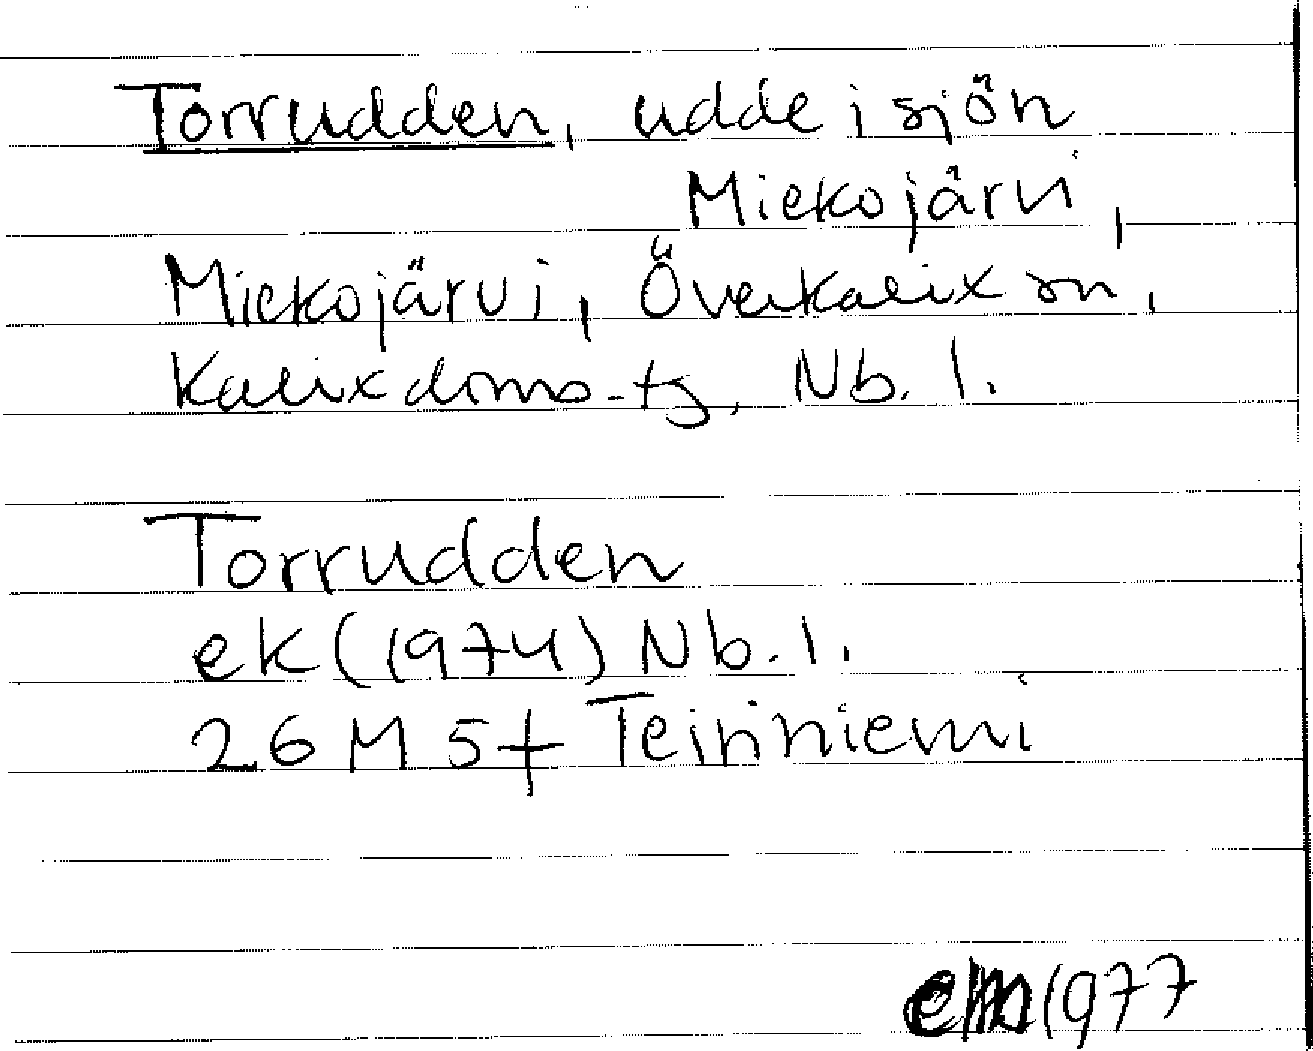 Torrudden, udde i sjön
Miekojärvi,
Miekojärvi, Överkalix sn,
Kalix doms-tg, Nb. l.
Torrudden
ek (1974) Nb. l.
26 M 5f Teiriniemi
1977